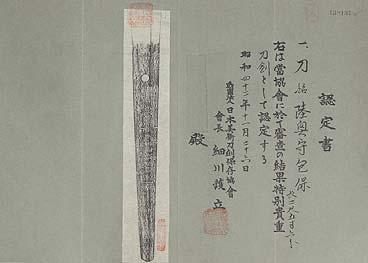 認定書
一、刀 銘 陸奥守包保
右は當協會に於て審査の結果特別貴重
刀剣として認定する
昭和四十二年十一月二十六日
財團法人日本美術刀剣保存協會
會長 細川護立
殿